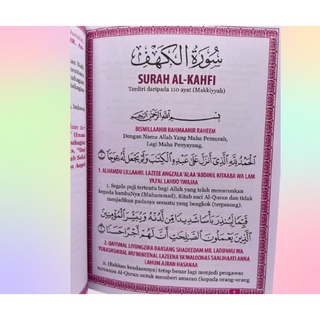 سورة الكهف
SURAH AL-KAHFI
Terdiri daripada 110 ayat (Makkiyyah)
بِسْمِ اللَّهِ الرَّحْمَٰنِ الرَّحِيمِ
BISMILLAAHIR RAHMAANIR RAHEEM
Dengan Nama Allah Yang Maha Pemurah,
Lagi Maha Penyayang.
الْحَمْدُ لِلَّهِ الَّذِي أَنْزَلَ عَلَىٰ عَبْدِهِ الْكِتَابَ وَلَمْ يَجْعَلْ لَهُ عِوَجًا
1. ALHAMDU LILLAAHIL LAZEEE ANGZALA 'ALAA 'ABDIHIL KITAABA WA LAM
YAJ'AL LAHOO 'IWAJAA
1. Segala puji tertentu bagi Allah yang telah menurunkan
kepada hambaNya (Muhammad), Kitab suci Al-Quran dan tidak
menjadikan padanya sesuatu yang bengkok (terpesong).
قَيِّمًا لِيُنْذِرَ بَأْسًا شَدِيدًا مِنْ لَدُنْهُ وَيُبَشِّرَ الْمُؤْمِنِينَ
الَّذِينَ يَعْمَلُونَ الصَّالِحَاتِ أَنَّ لَهُمْ أَجْرًا حَسَنًا
2. QAYYIMAL LIYUNGZIRA BAASANG SHADEEDAM MIL LADUNHU WA
YUBASHSHIRAL MU'MINEENAL LAZEENA YA'MALOONAS SAALIHAATI ANNA
LAHUM AJRAN HASANAA
2. (Bahkan keadaannya) tetap benar lagi menjadi pengawas
turunnya Al-Quran untuk memberi amaran (kepada orang-orang